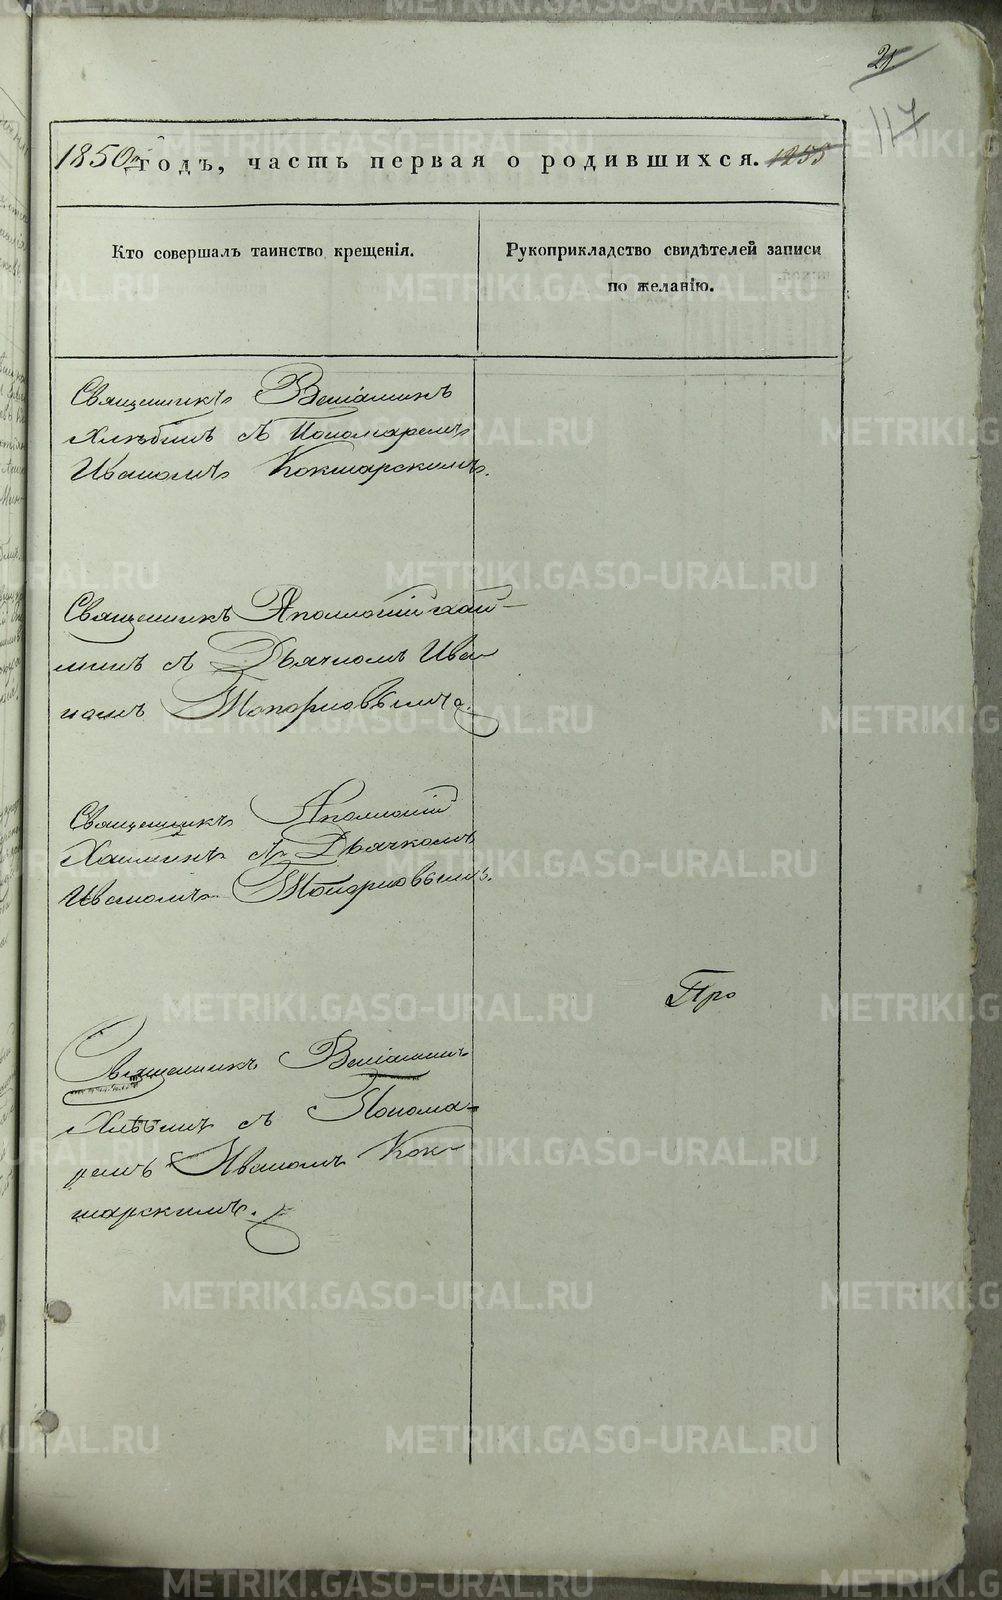 21
117
1850 годъ, часть первая о родившихся. 1255
Кто совершалъ таинство крещенія.
Рукоприкладство свидѣтелей записи
по желанію.
Священникъ Веніаминъ
Хлѣбинъ съ Пономаремъ
Иваномъ Кокшарскимъ.
Священникъ Аполлоній Хай-
минъ съ Дьячкомъ Ива
номъ Топорковымъ.
Священникъ Аполлоній
Хайминъ съ Дьячкомъ
Иваномъ Топорковымъ.
Про
Священникъ Веніаминъ
Хлѣбинъ съ Понома-
ремъ Иваномъ Кок-
шарскимъ.
METRIKI.GASO-URAL.RU